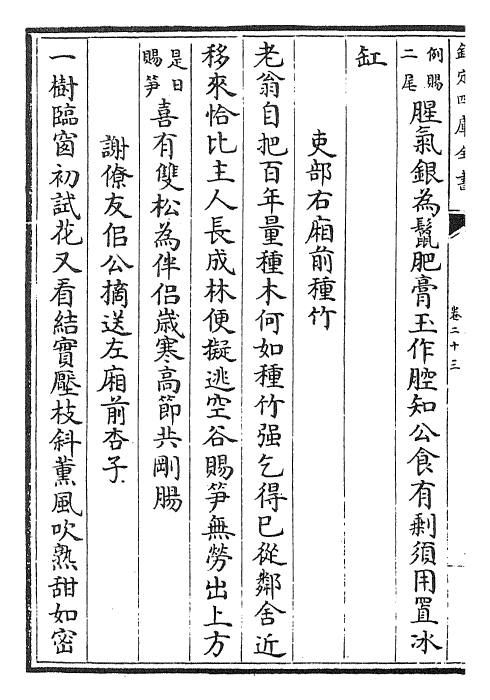 欽定四庫全書
卷二十三
例賜二尾
腥氣銀為鬛肥膏玉作腔知公食有剰須用置冰
缸
吏部右廂前種竹
老翁自把百年量種木何如種竹强乞得已從鄰舍近
移來恰比主人長成林便擬逃空谷賜笋無勞出上方
是日賜笋
喜有雙松為伴侣歳寒高節共剛腸
謝僚友侣公摘送左廂前杏子
一樹臨窗初試花又看結實壓枝斜薰風吹熟甜如密